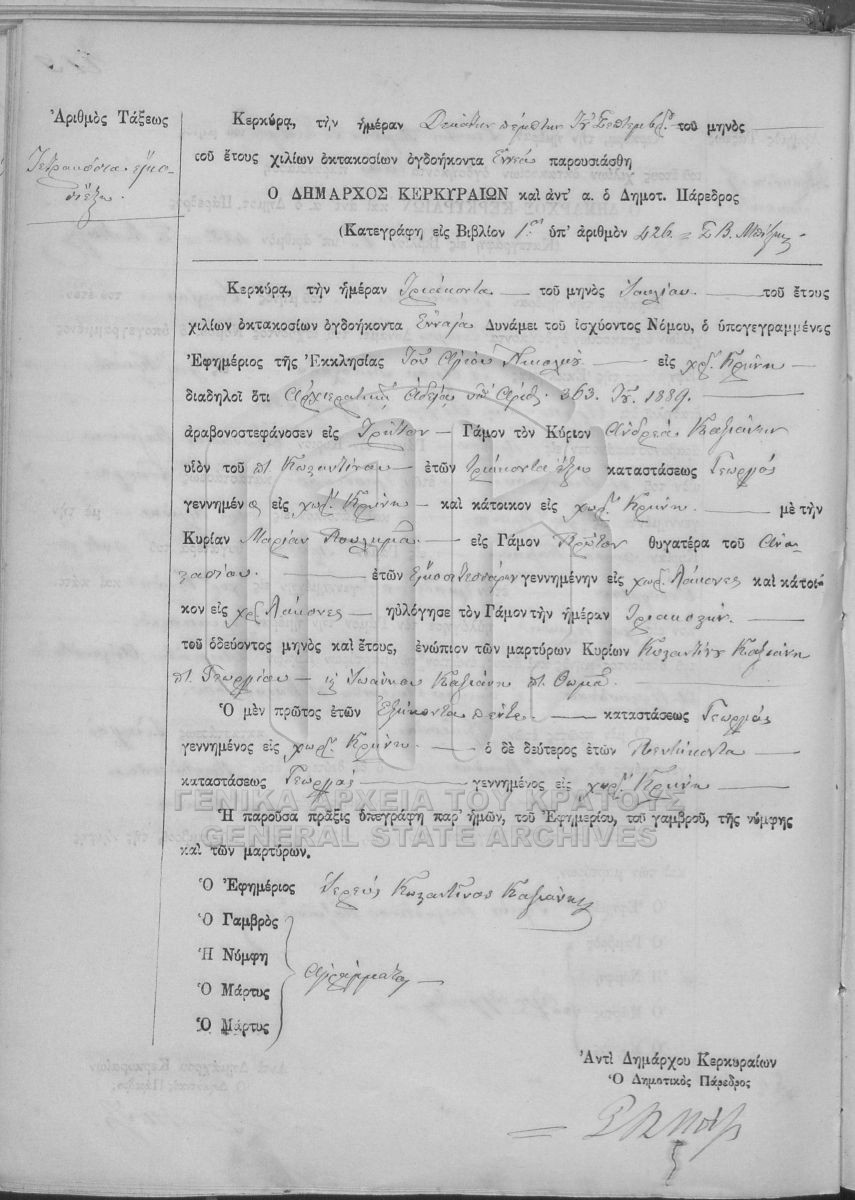 Ἀριθμὸς Τάξεως
Τετρακόσια εἴκοσι
ἕξ
Κερκύρᾳ, τὴν ἡμέραν Δεκάτην πέμπτην 7βρ. τοῦ μηνὸς
τοῦ ἔτους χιλίων ὀκτακοσίων ὀγδοήκοντα Ἐννέα παρουσιάσθη
Ὁ ΔΗΜΑΡΧΟΣ ΚΕΡΚΥΡΑΙΩΝ καὶ ἀντ' α. ὁ Δημοτ. Πάρεδρος
(Κατεγράφη εἰς Βιβλίον 1ον ὑπ' ἀριθμὸν 426
Κερκύρᾳ, τὴν ἡμέραν Τριάκοντα τοῦ μηνὸς Ἰουλίου τοῦ ἔτους
χιλίων ὀκτακοσίων ὀγδοήκοντα Ἐννέα Δυνάμει τοῦ ἰσχύοντος Νόμου, ὁ ὑπογεγραμμένος
Ἐφημέριος τῆς Ἐκκλησίας Τοῦ Ἁγίου Νικολάου εἰς χωρ. Κρήνη
διαδηλοῖ ὅτι Ἀρχιερατικῆς ἀδείας ὑπ' Ἀριθ. 363. 1889.
ἀραβονοστεφάνοσεν εἰς Τρίτον Γάμον τὸν Κύριον Ἀνδρέα Κασιάνην
υἱὸν τοῦ π. Κωσταντίνου ἐτῶν τριάκοντα ἕξω καταστάσεως Γεωργὸς
γεννημένο εἰς χωρ. Κρήνη καὶ κάτοικον εἰς χωρ. Κρήνη μὲ τὴν
Κυρίαν Μαρίαν Πουλημᾶ εἰς Γάμον Πρῶτον θυγατέρα τοῦ Ἀνα-
στασίου. ἐτῶν Εἴκοσι τεσσάρων γεννημένην εἰς χωρ. Λάκονες καὶ κάτοι-
κον εἰς χωρ. Λάκονες ηὐλόγησε τὸν Γάμον τὴν ἡμέραν Τριακοστὴν
τοῦ ὁδεύοντος μηνὸς καὶ ἔτους, ἐνώπιον τῶν μαρτύρων Κυρίων Κωσταντίνου Κασιάνη
π. Γεωργίου Ἰωάννου Κασιάνη π. Θωμᾶ
Ὁ μὲν πρῶτος ἐτῶν Ἑξήκοντα πέντε καταστάσεως Γεωργὸς
γεννημένος εἰς χωρ. Κρήνη ὁ δὲ δεύτερος ἐτῶν Πεντήκοντα
καταστάσεως Γεωργὸς γεννημένος εἰς χωρ. Κρήνη
ΓΕΝΙΚΑ ΑΡΧΕΙΑ ΤΟΥ ΚΡΑΤΟΥΣ
Ἡ παροῦσα πρᾶξις ὑπεγράφη παρ' ἡμῶν, τοῦ Ἐφημερίου, τοῦ γαμβροῦ, τῆς νύμφης
GENERAL STATE ARCHIVES
καὶ τῶν μαρτύρων.
Ὁ Ἐφημέριος Ἱερεὺς Κωσταντῖνος Κασιάνης
Ὁ Γαμβρὸς
Ἡ Νύμφη
Ἀγράμματοι
Ὁ Μάρτυς
Ὁ Μάρτυς
Ἀντὶ Δημάρχου Κερκυραίων
Ὁ Δημοτικὸς Πάρεδρος